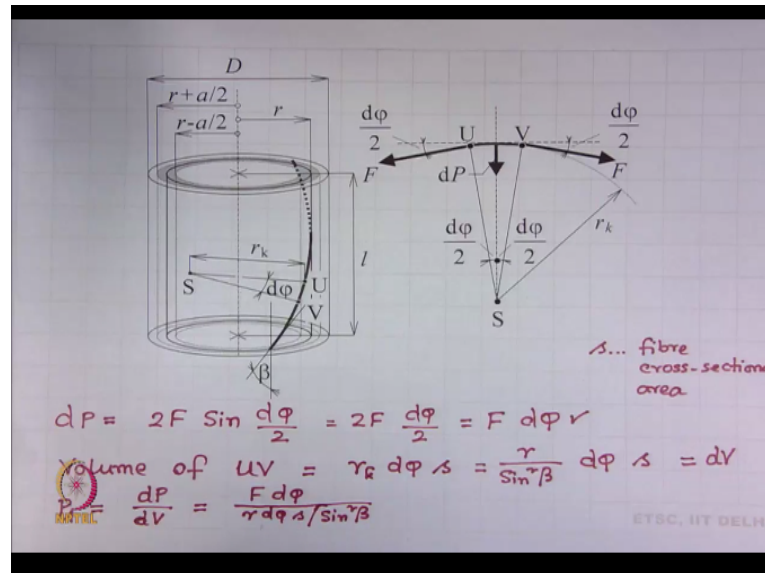 D
r+a/2
r
r-a/2
dφ/2
U V
dφ/2
F
dP
F
dφ/2 dφ/2
r_k
S
r_k
l
S
dφ
U
V
β
s... fibre
cross-section
area
dP = 2F Sin dφ/2 = 2F dφ/2 = F dφ r
Volume of UV = r_k dφ s = r/Sin^rβ dφ s = dV
P = dP/dV = F dφ / r dφ s/Sin^rβ
NPTEL
ETSC, IIT DELH